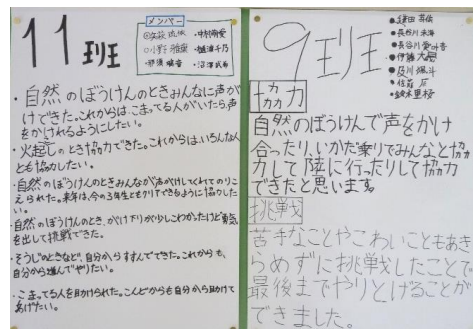 11班
メンバー
・中村
・自然のぼうけんのときみんなに声が
けできた。これからは、こまってる人がいたら声
をかけれるようにしたい。
・火起しのとき協力できた。これからは、いろんな人
とも協力したい。
・自然のぼうけんのときみんなが声がけしてくれてのりこ
えられた。来年は、今の3年生ともクリアできるように協力した
い。
・自然のぼうけんのとき、がけ下りが少しこわかったけど勇気
を出して挑戦できた。
・そうじのときなど、自分からすすんでできた。これからも、
自分から進んでやりたい。
・こまってる人を助けられた。こんどからも自分から助けて
あげたい。
9班
協力
自然のぼうけんで声をかけ
合ったり、いかだ乗りでみんなと協
力して陸に行ったりして協力
できたと思います。
挑戦
苦手なことやこわいこともあき
らめずに挑戦したことで
最後までやりとげることが
できました。